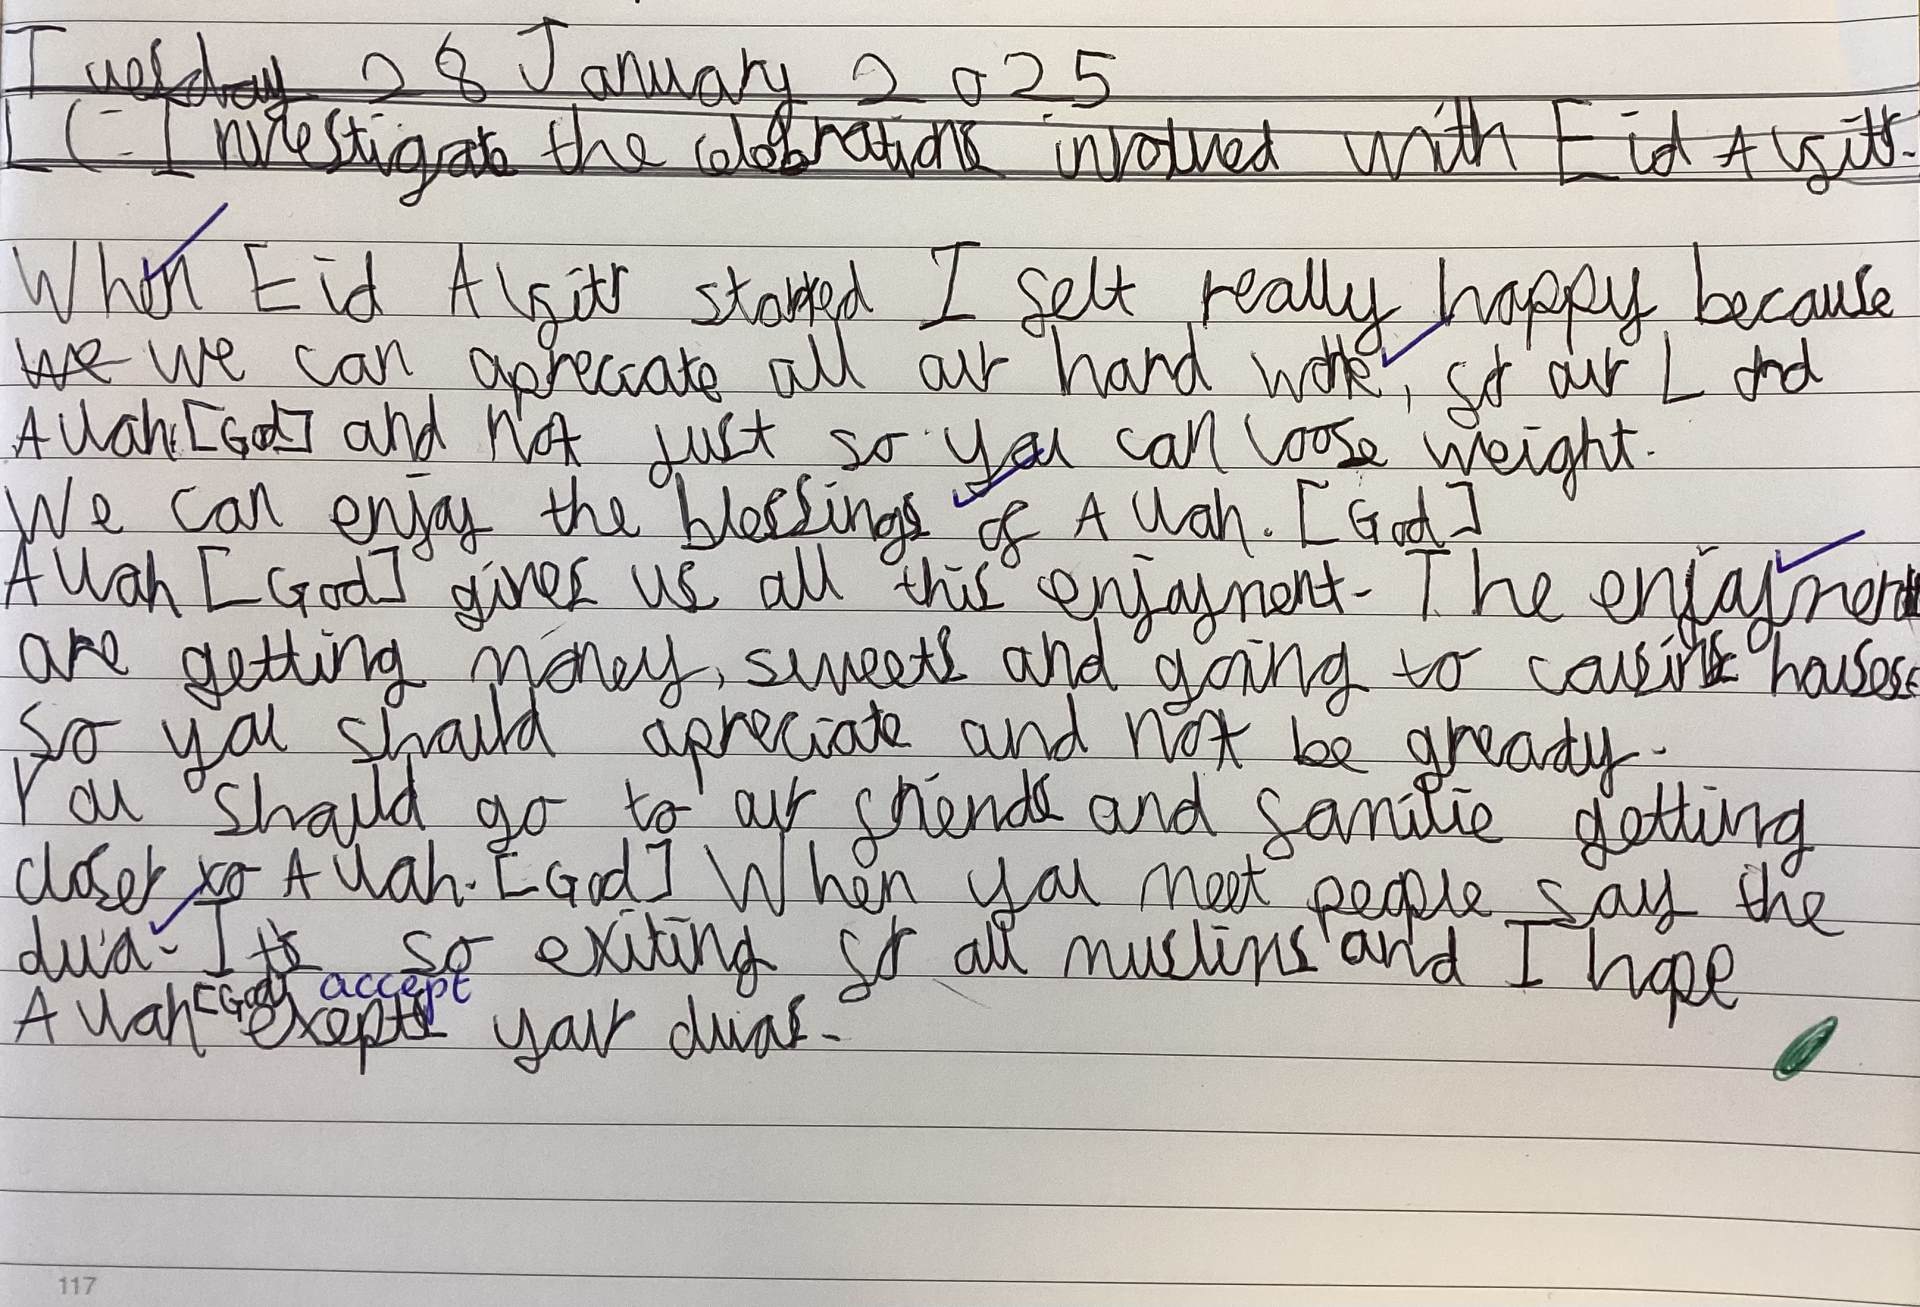 Tuesday 28 January 2025
LC: Investigate the celebrations involved with Eid Alfitr.
When Eid Alfitr started I felt really happy because
we we can apreciate all our hard work, for our Lord
Allah [God] and not just so you can loose weight.
We can enjoy the blessings of Allah. [God]
Allah [God] gives us all this enjoyment. The enjoyment
are getting money, sweets and going to cousins houses.
So you should apreciate and not be gready.
You should go to our friends and familie getting
closer to Allah. [God] When you meet people say the
dua. Its so exiting for all muslims and I hope
accept
Allah [God] exepts your duas.
117